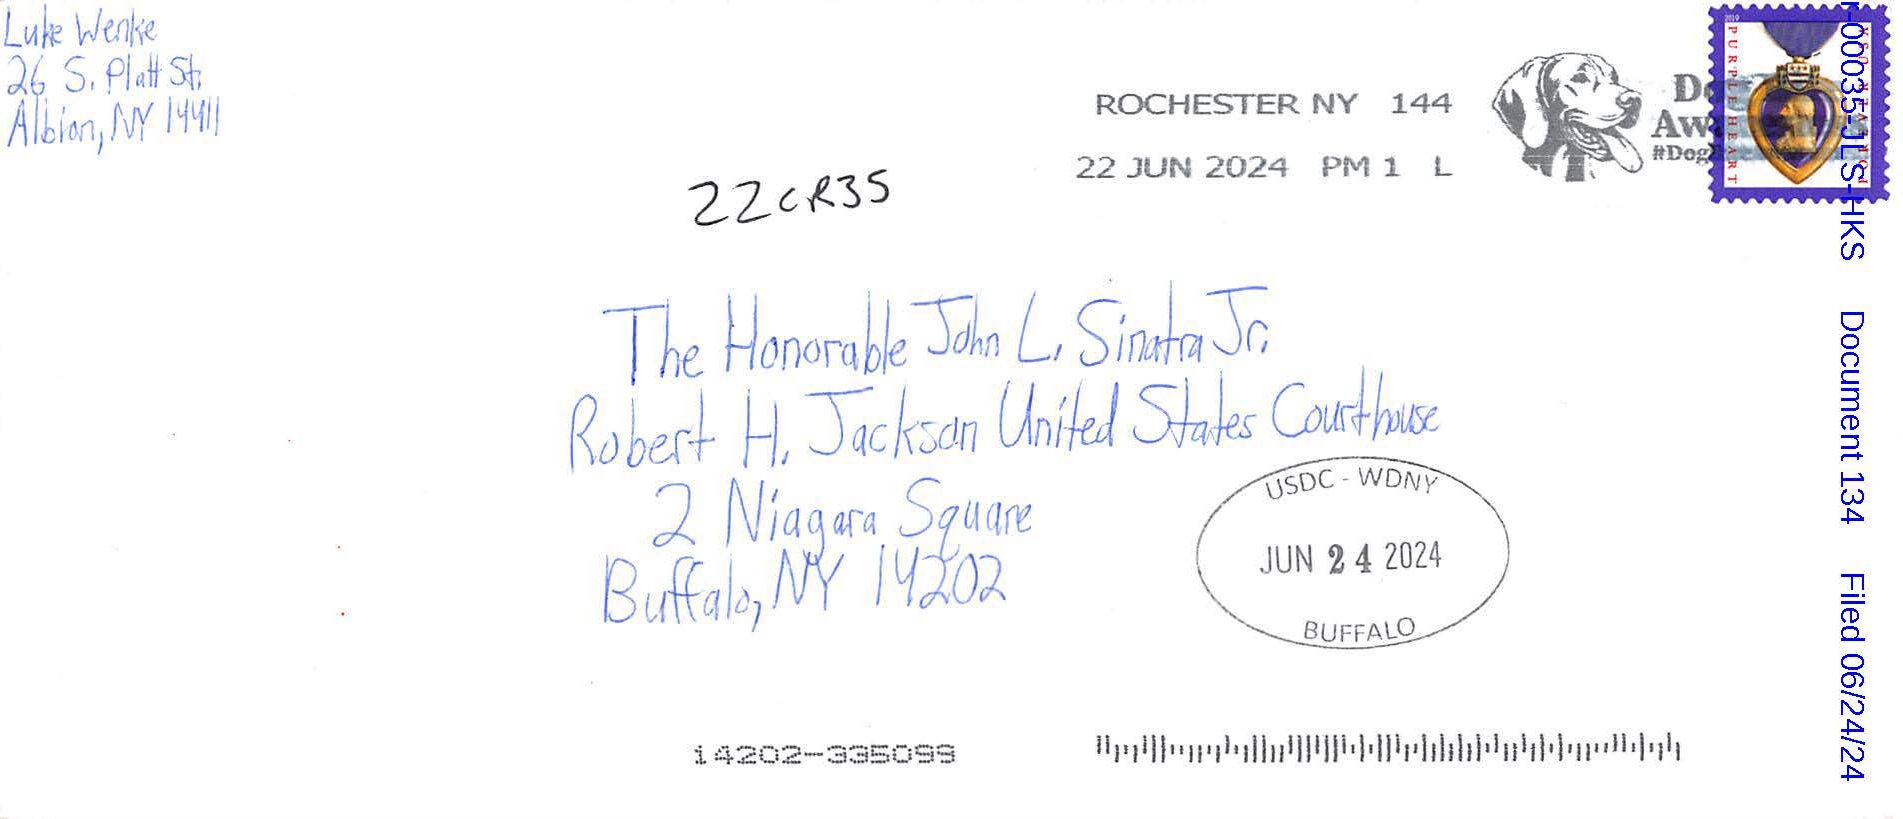 Luke Wenke
26 S. Platt St.
Albion, NY 14411
ROCHESTER NY 144
22 JUN 2024 PM 1 L
#Dog
2019
PURPLE HEART
22CR35
The Honorable John L. Sinatra Jr.
Robert H. Jackson United States Courthouse
2 Niagara Square
Buffalo, NY 14202
USDC - WDNY
JUN 24 2024
BUFFALO
14202-335099
-00035-JLS-HKS Document 134 Filed 06/24/24